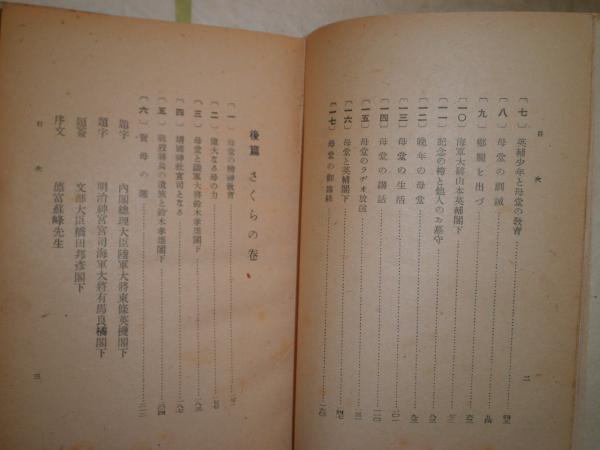 目次
〔七〕英補少年と母堂の教育
〔八〕母堂の訓誡
〔九〕鄕關を出づ
〔一〇〕海軍大將山本英補閣下
〔一一〕記念の袴と他人のお墓守
〔一二〕晚年の母堂
〔一三〕母堂の生活
〔一四〕母堂の講話
〔一五〕母堂のラヂオ放送
〔一六〕母堂と英補閣下
〔一七〕母堂の御臨終
二
後篇 さくらの卷
〔一〕母堂の精神敎育
〔二〕偉大なる母の力
〔三〕母堂と陸軍大將鈴木孝雄閣下
〔四〕靖國神社宮司となる
〔五〕戰歿將兵の遺族と鈴木孝雄閣下
〔六〕賢母の墓
題字 內閣總理大臣陸軍大將東條英機閣下
題字 明治神宮宮司海軍大將有馬良橘閣下
題簽 文部大臣橋田邦彥閣下
序文 德富蘇峰先生
目次
三